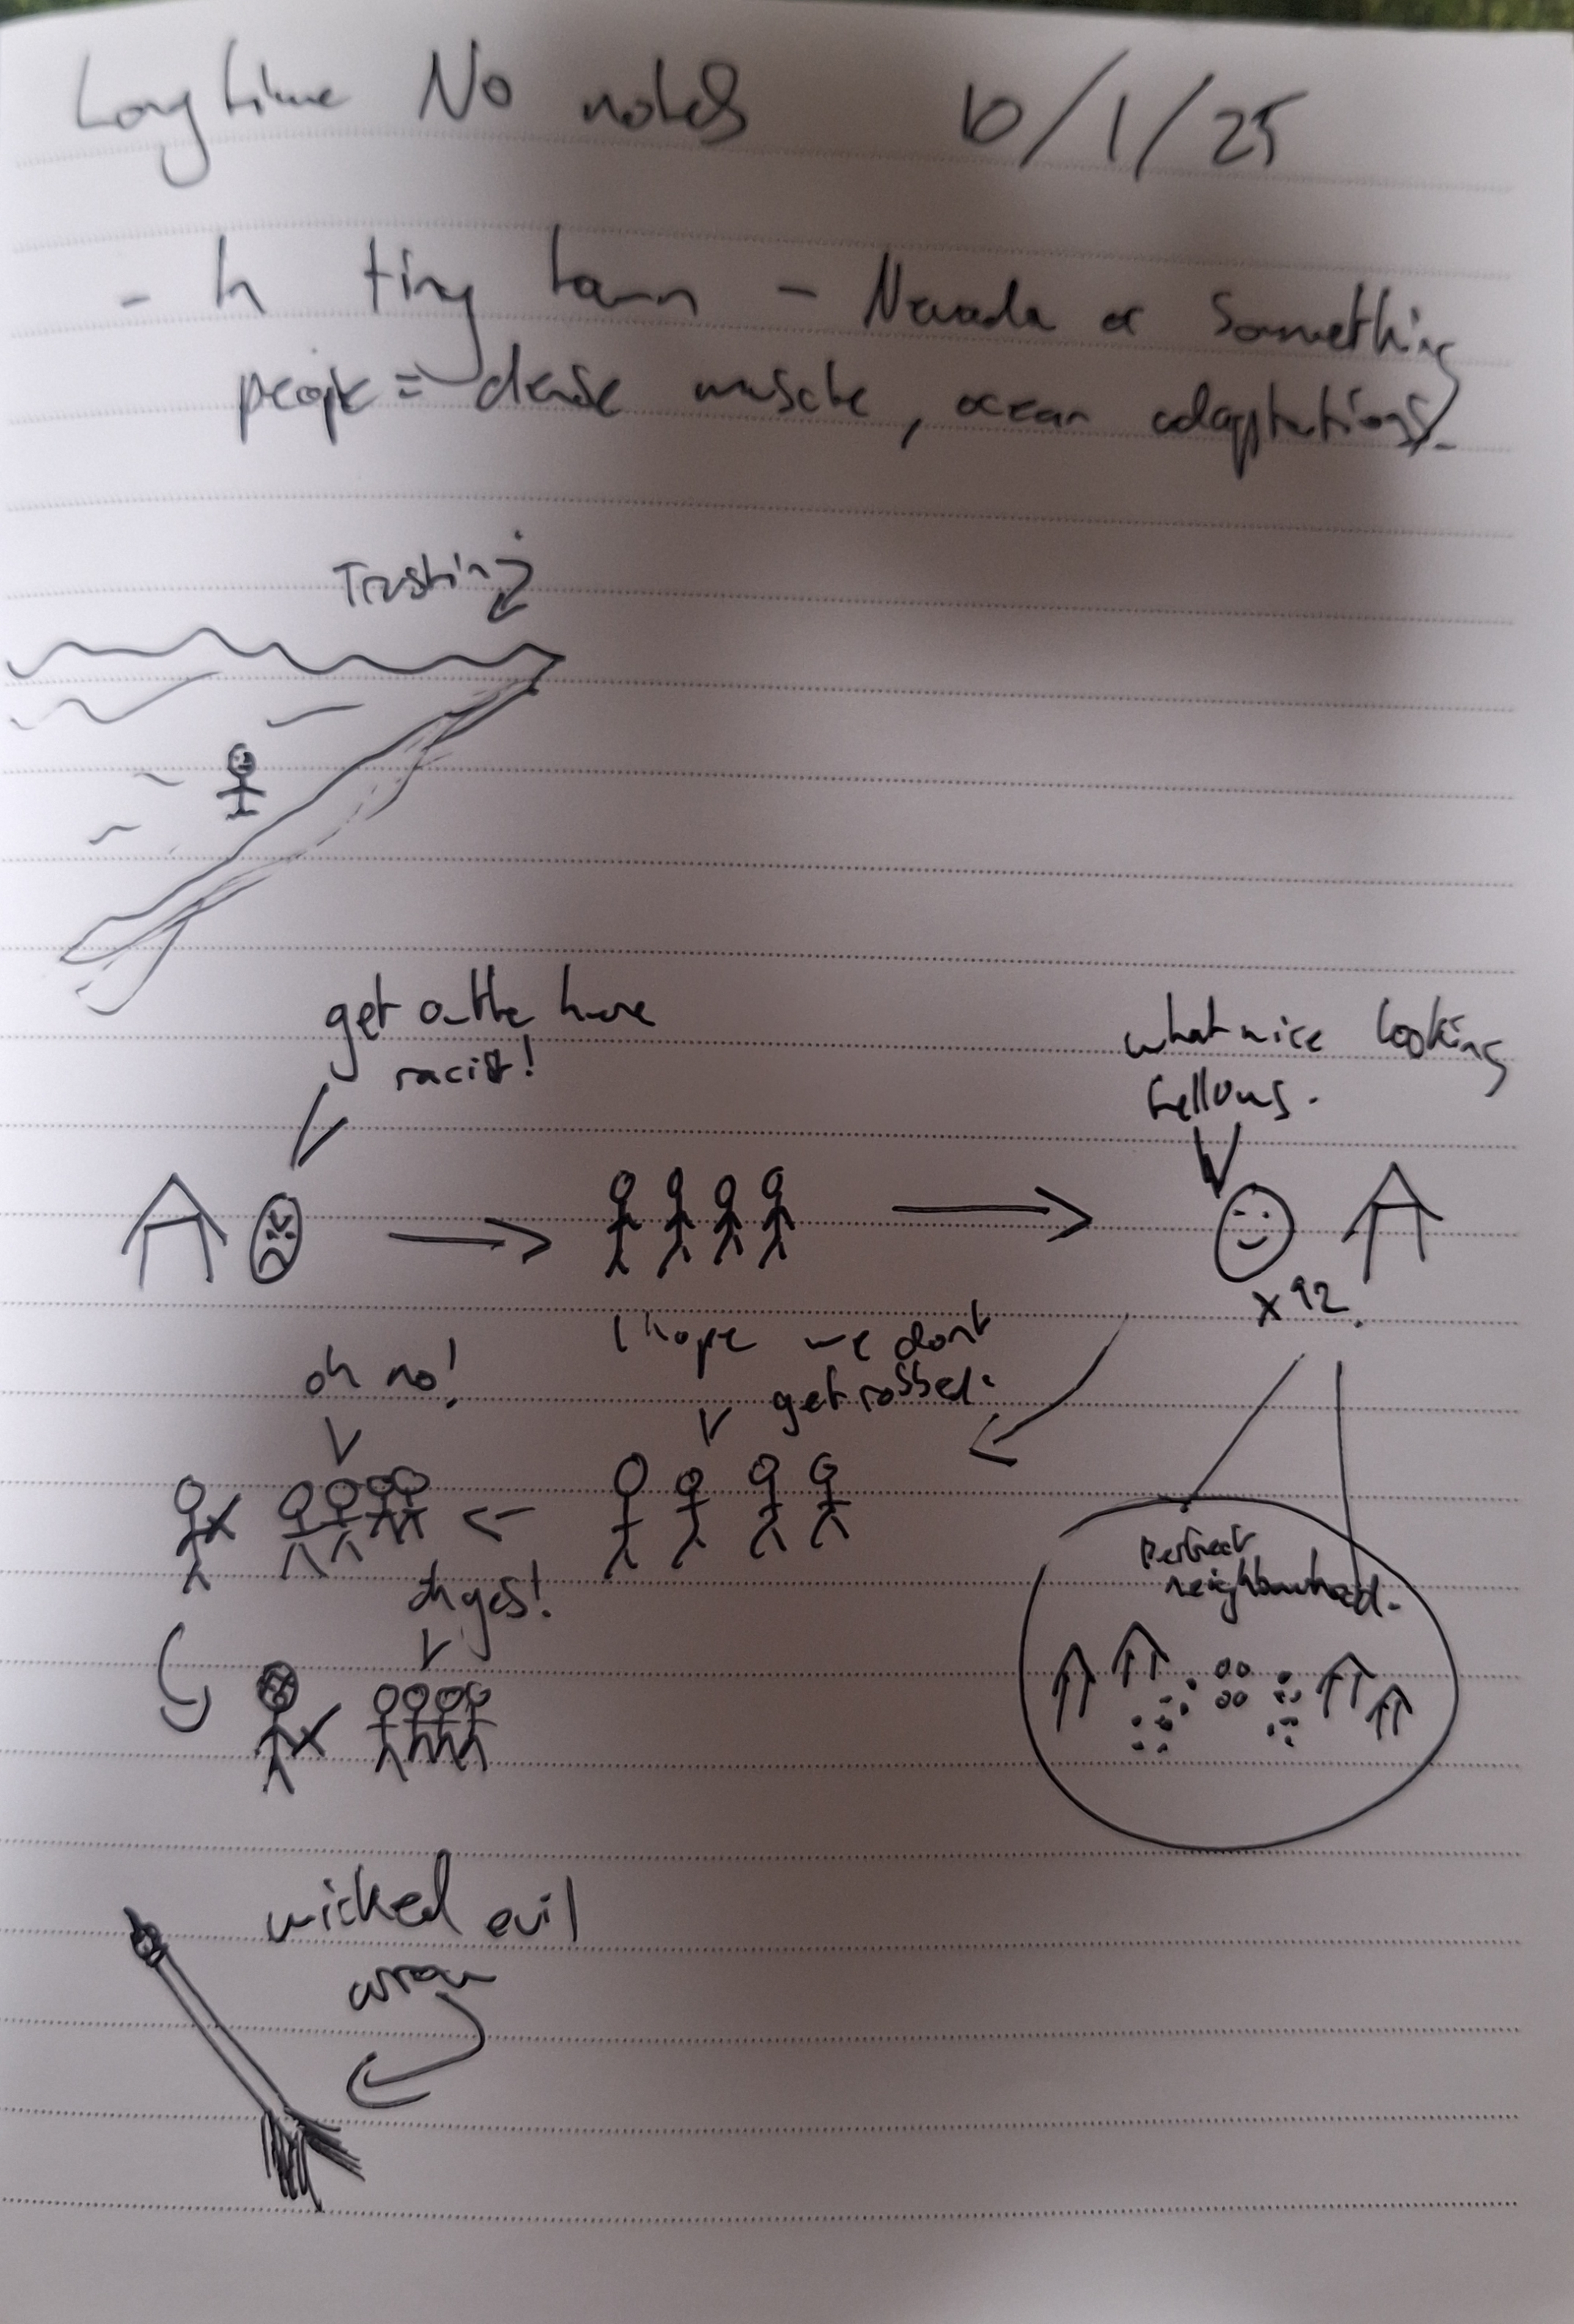 Long time No notes 10/1/25
- In tiny town - Nevada or Something
people = dense muscle, ocean adaptations.
get outta here
racist!
what nice looking
fellows.
x92.
I hope we dont
get robbed.
oh no!
oh yes!
Perfect
neighbourhood.
wicked evil
arrow